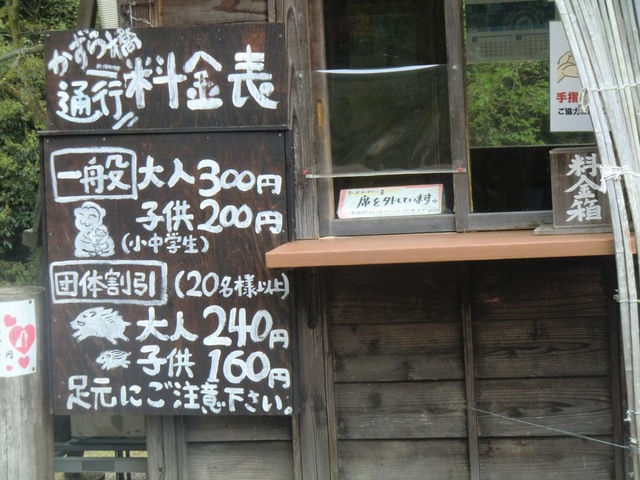 かずら橋
通行
料金表
一般 大人 300円
子供 200円
(小中学生)
団体割引 (20名様以上)
大人 240円
子供 160円
足元にご注意下さい。
席を外しています。
料金箱
手指
ご協力
円